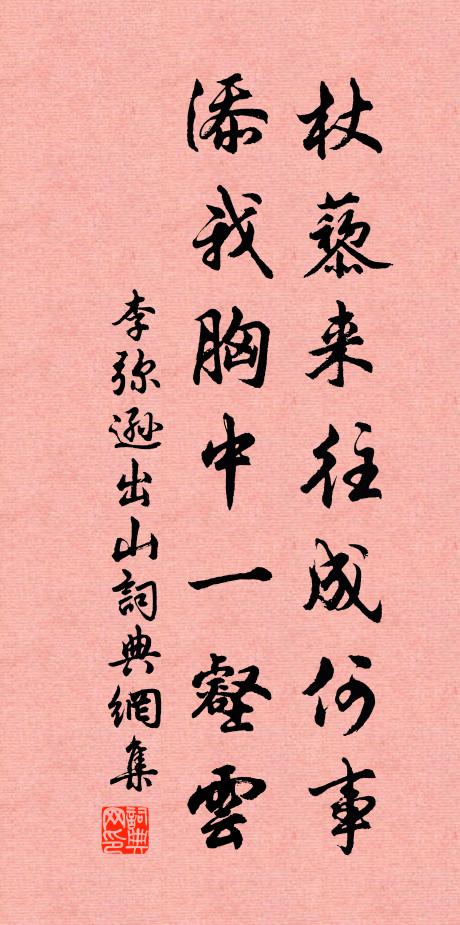 杖藜来往成何事
添我胸中一壑雲
李弥遜出山詞典網集
詞典网印